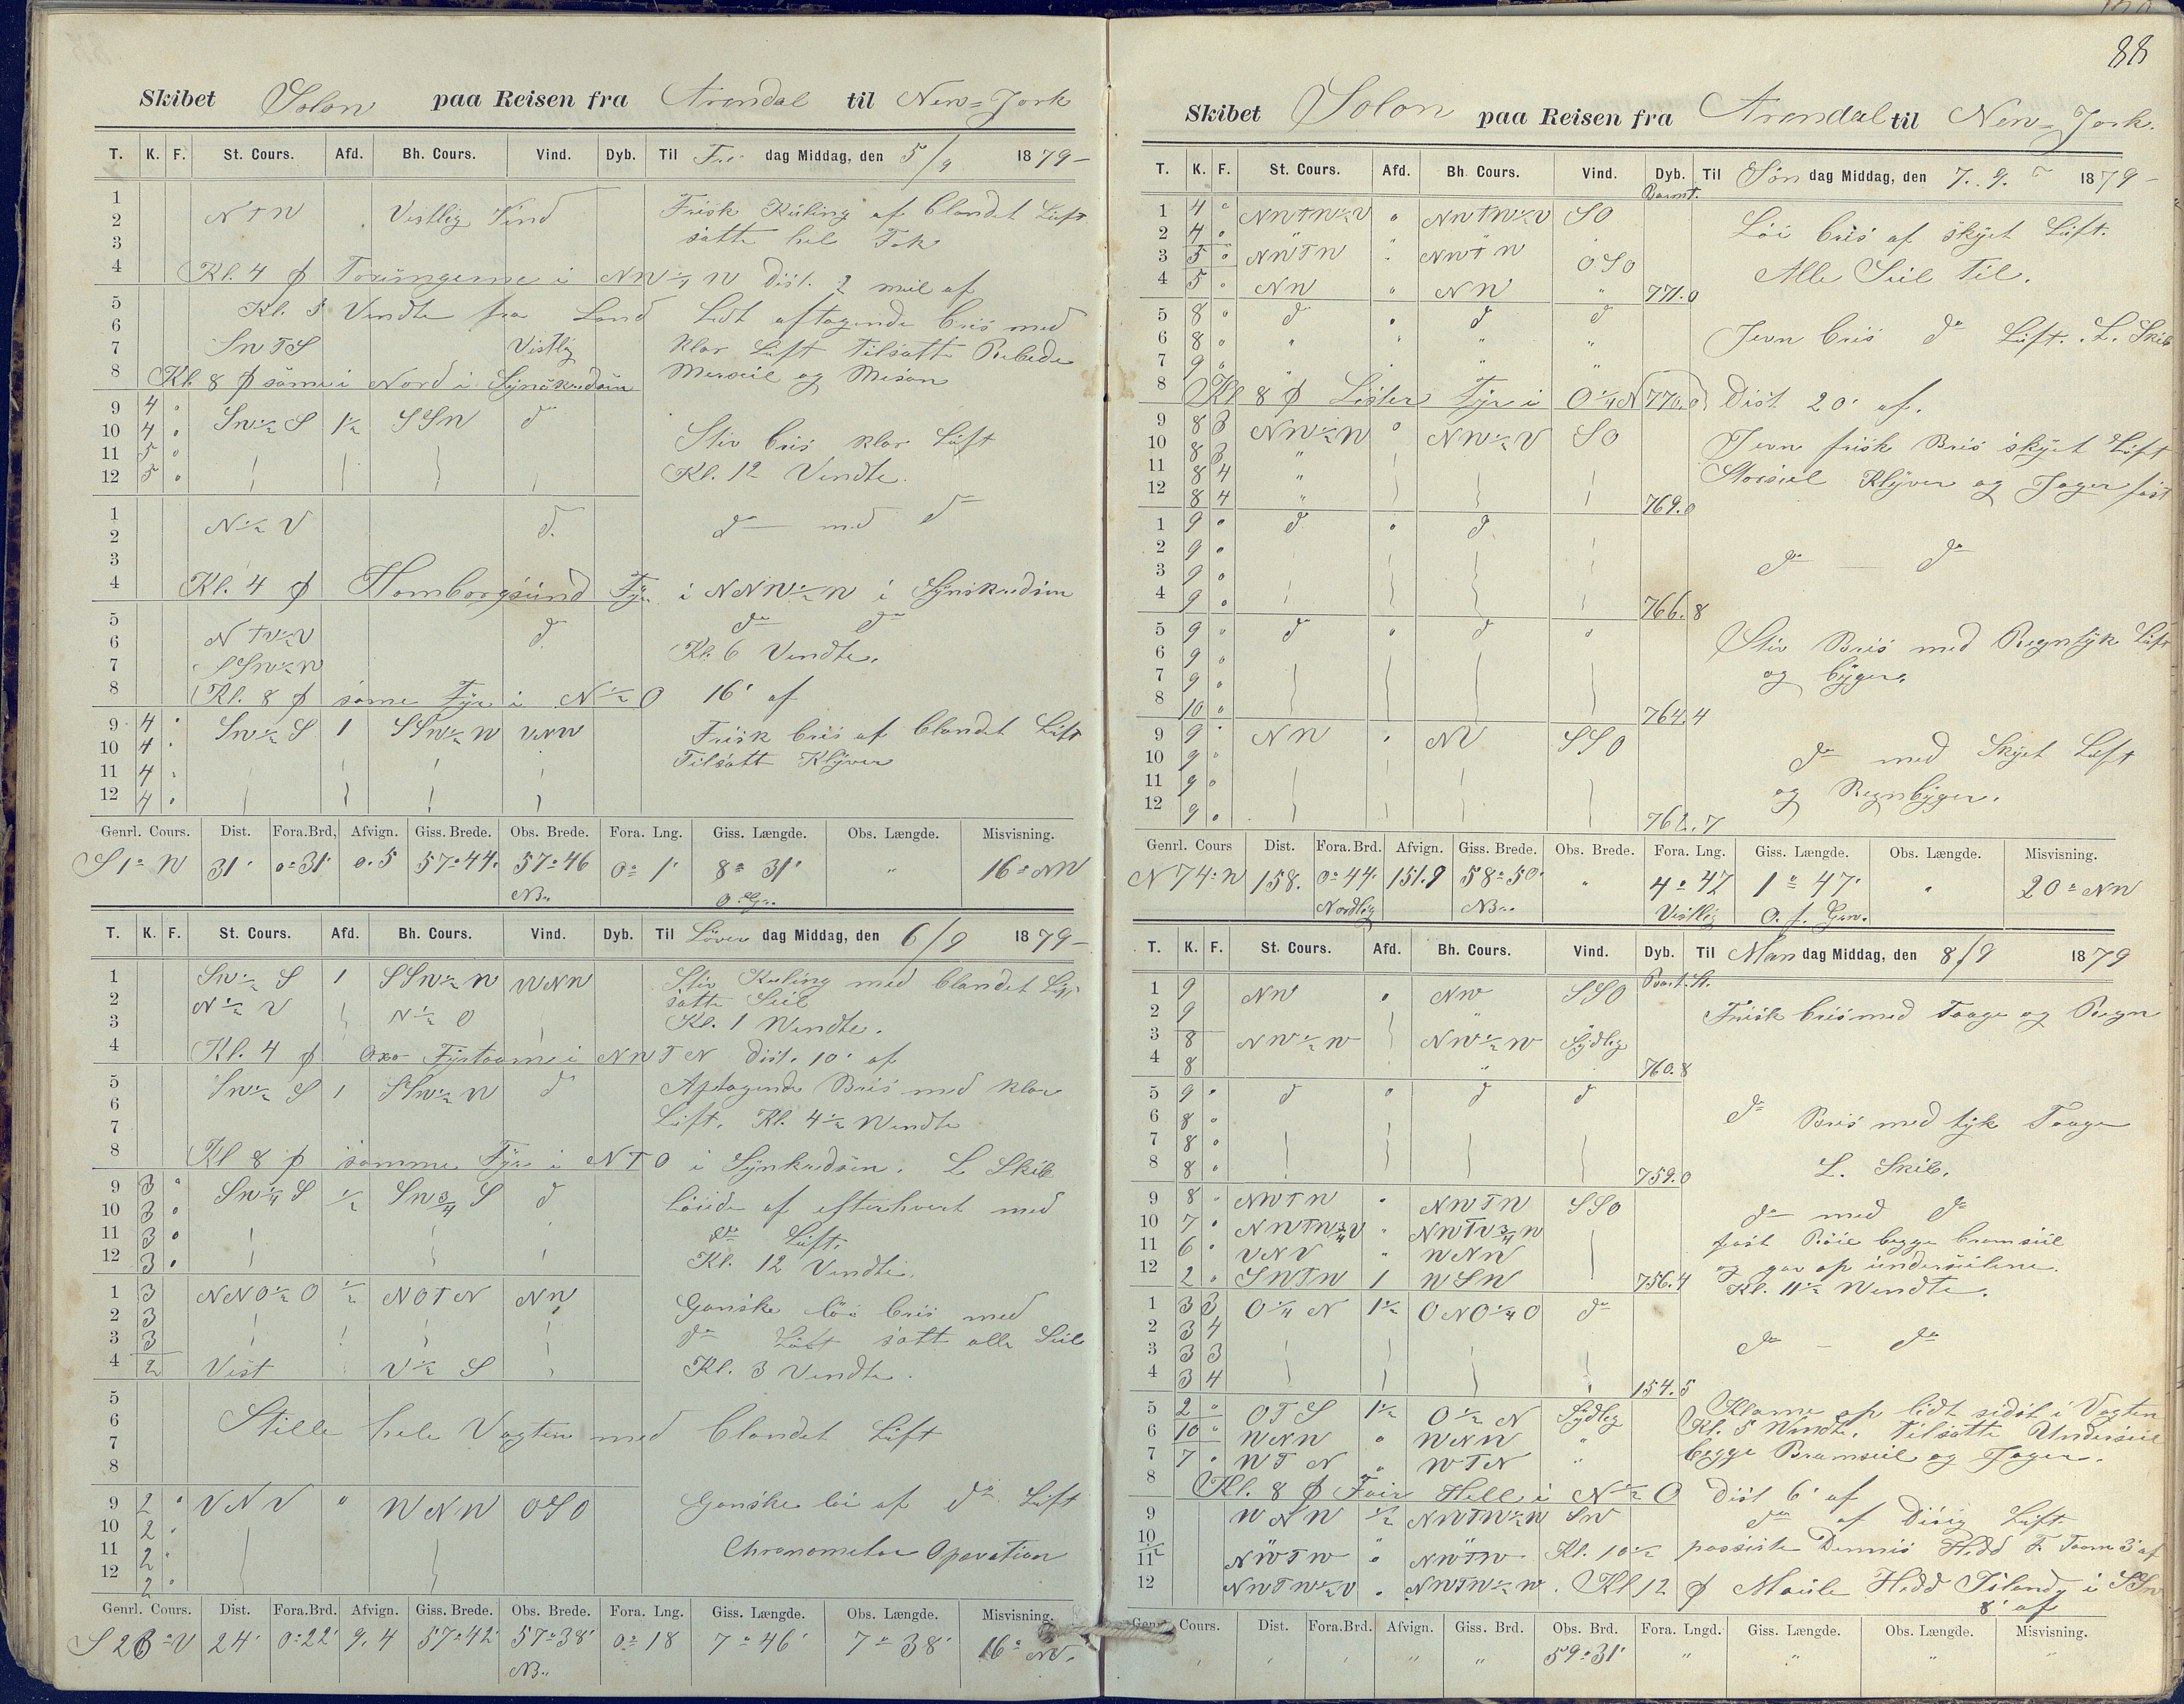 Skibet Solon paa Reisen fra Arendal til New=York
T. K. F. St. Cours. Afd. Bh. Cours. Vind. Dyb. Til Fre dag Middag, den 5/9 1879 –
1
2 NTW Vestlig Vind Frisk Kuling af blandet Luft
3 satte hel Fok
4 Kl. 4 p Torungerne i NW 1/4 W Dist. 2 mil af
5 Vendte fra Land Lidt aftagende bris med
6
7 SWTS Vestlig klar Luft Tilsatte Rebede
8 Kl. 8 p samme i Nord i Merseil og Mesan
9 4 SW 1/2 S 1 1/2 SSW d
10 4 Stiv bris klar Luft
11 5
12 5 Kl. 12 Vendte.
1
2 N 1/2 V d. d med d
3
4 Kl. 4 p Homborgsund Fyr i NNW 1/2 W i Synskredsen
5
6 d
7 SSW 1/2 W Kl. 6 Vendte.
8 Kl. 8 p samme Fyr i N 1/2 O 16' af
9 4 SW 1/2 S 1 SSW 1/2 W VNW Frisk bris af blandet Luft
10 4 Tilsatt Klyver
11 4
12 4
Genrl. Cours. Dist. Fora.Brd. Afvign. Giss. Brede. Obs. Brede. Fora. Lng. Giss. Længde. Obs. Længde. Misvisning.
S 1° W 31' 0°31' 0.5 57°44' 57°46 0° 1' 8° 31' " 16° NW
NBr.
T. K. F. St. Cours. Afd. Bh. Cours. Vind. Dyb. Til Löver dag Middag, den 6/9 1879 –
1 SW 1/2 S 1 SSW 1/2 W WNW Stiv Kuling med blandet Luft
2 N 1/2 V N 1/2 O satte Seil
3 Kl. 1 Wendte.
4 Kl. 4 p Oxo Fyrtaarne i NWTN Dist. 10' af
5 SW 1/2 S 1 SSW 1/2 W d Aftagende Bris med klar
6
7 Luft. Kl. 4 1/2 Wendte
8 Kl 8 p samme Fyr i NTO i Synkredsen. L Skib
9 3 SW 1/4 S 1/2 SW 3/4 S d Löiede af efterhvert med
10 3
11 3 do Luft.
12 3 Kl. 12 Vendte.
1 3 NNO 1/2 O 1/2 NOTN NW Ganske löi bris med
2 3
3 3 do Luft satt alle Seil
4 2 Vest V 1/2 S Kl. 3 Vendte.
5
6 Stille hele Vagten med blandet Luft
7
8
9 2 VNV WNW OSO Ganske löi af do Luft
10 2
11 2 Chronometer Opservation
12 2
Genrl. Cours. Dist. Fora.Brd. Afvign. Giss. Brede. Obs. Brede. Fora. Lng. Giss. Længde. Obs. Længde. Misvisning.
S 26° V 24' 0°22' 9.4 57°42' 57°38' 0° 18 7° 46' 7° 38' 16° NW.
NBr.
88
Skibet Solon paa Reisen fra Arendal til New=York.
T. K. F. St. Cours. Afd. Bh. Cours. Vind. Dyb. Til Søn dag Middag, den 7. 9. 1879 –
Baromt.
1 4 NWTW 1/2 V NWTW 1/2 V SO Löi bris af skyet Luft.
2 4
3 5 NWTN NWTN OSO Alle Seil Til.
4 5 NW NW " 771.0
5 8 d d d
6 8 Jevn bris do Luft. L. Skib
7 9
8 Kl 8 p Lister Fyr i O 1/4 N 770.0 Dist 20' af.
9 8 3 NW 1/2 W NW 1/2 V SO Jevn frisk Bris skyet Luft
10 8 3
11 8 4 Storseil Klyver og Jager fast
12 8 4 769.0
1 9 d d
2 9
3 9 do — do
4 9 766.8
5 9 d d Stiv Bris med Regntyk Luft
6 9
7 9 og byger.
8 10 764.4
9 9 NW NV SSO
10 9 do med Skyet Luft
11 9 og Regnbyger.
12 9 762.7
Genrl. Cours Dist. Fora. Brd. Afvign. Giss. Brede. Obs. Brede. Fora. Lng. Giss. Længde. Obs. Længde. Misvisning.
N 74° W 158. 0°44' 151.9 58°50' " 4° 47 1° 47' " 20° NW
Nordlig NBr. Vestlig O. f. Grw.
T. K. F. St. Cours. Afd. Bh. Cours. Vind. Dyb. Til Man dag Middag, den 8/9 1879
1 9 NW NW SSO
2 9 Frisk bris med Taage og Regn
3 8 NW 1/2 W NW 1/2 W Sydlig
4 8 760.8
5 9 d d d
6 8 do Bris med tyk Taage
7 8
8 8 759.0 L. Skib.
9 8 NWTW NWTW SSO do med do
10 7 NWTW 3/4 V NWTV 3/4 W fast Röil begge bramseil
11 6 VNV WNW og gav op underseilene.
12 2 SWTW 1 WSW 756.4 Kl. 11 1/2 Wendte.
1 3 3 O 1/4 N 1 1/2 ONO 1/4 O do
2 3 4
3 3 3 do – do
4 3 4 154.5
5 2 OTS 1 1/2 O 1/2 N Sydlig Klarne op lidt sidst i Vagten
6 10 WNW WNW " Kl. 5 Wendte. Tilsatte Underseil
7 7 WTN WTN " begge Bramseil og Jager.
8 Kl. 8 p Fair Hill i N 1/2 O Dist 6' af
9 WNW 1/2 NWTW 1/2 W SW do af Disig Luft.
10
11 NWTW NWTW Kl. 10 1/2 passerte Dennis Hedd F. Taarn 3' af
12 NWTW 1/2 V NWTW 1/2 W. Kl 12 p Moule Hedd i SSW
8' af
Genrl. Cours. Dist. Fora. Brd. Afvign. Giss. Brd. Obs. Brd. Fora. Lngd. Giss. Længde. Obs. Længde. Misvisning.
59°31'